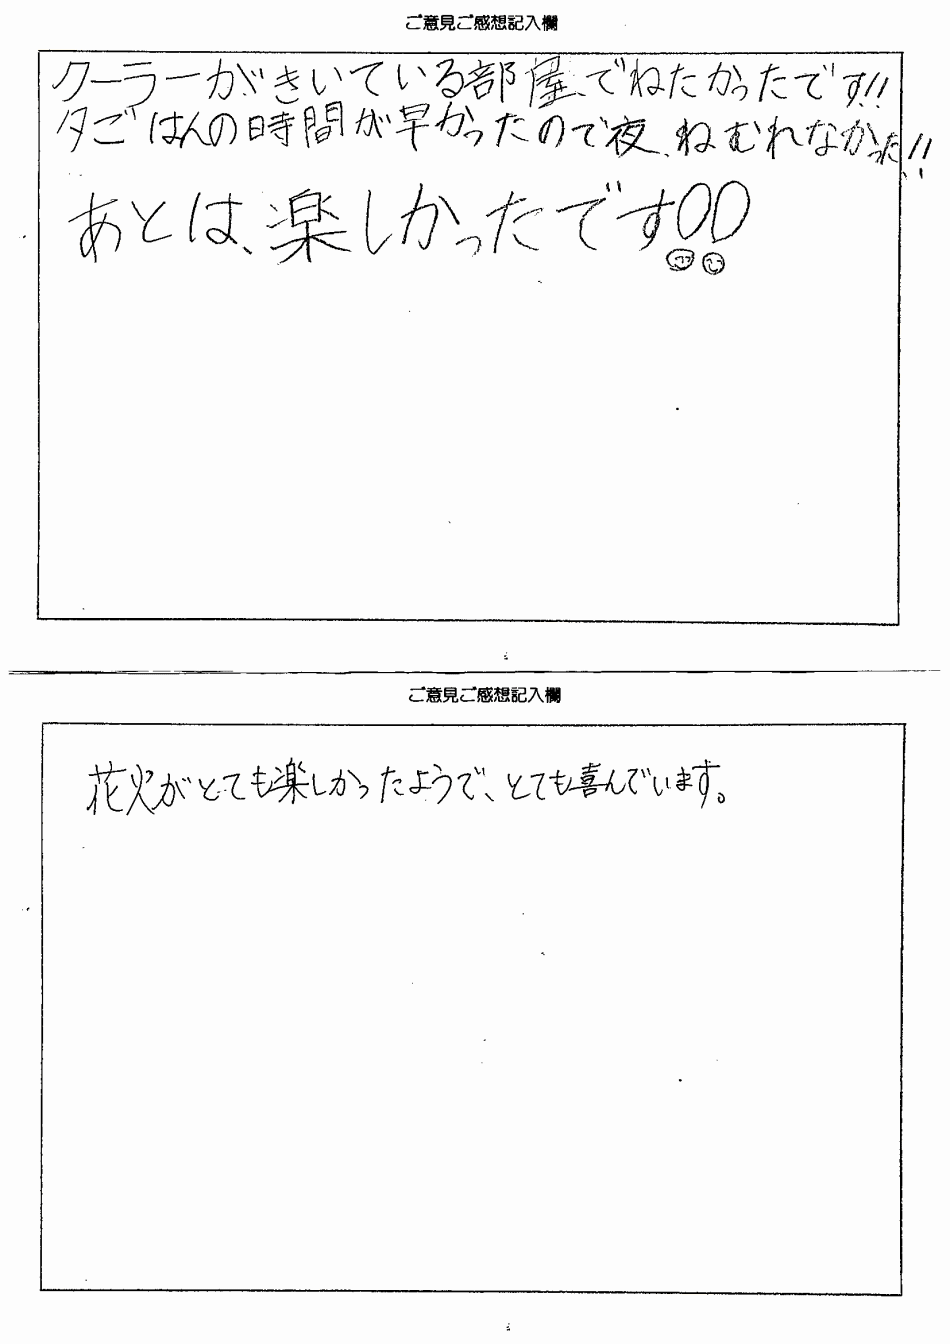 ご意見ご感想記入欄
クーラーがきいている部屋でねたかったです!!
夕ごはんの時間が早かったので夜、ねむれなかった!!
あとは、楽しかったです!!
ご意見ご感想記入欄
花火がとても楽しかったようで、とても喜んでいます。